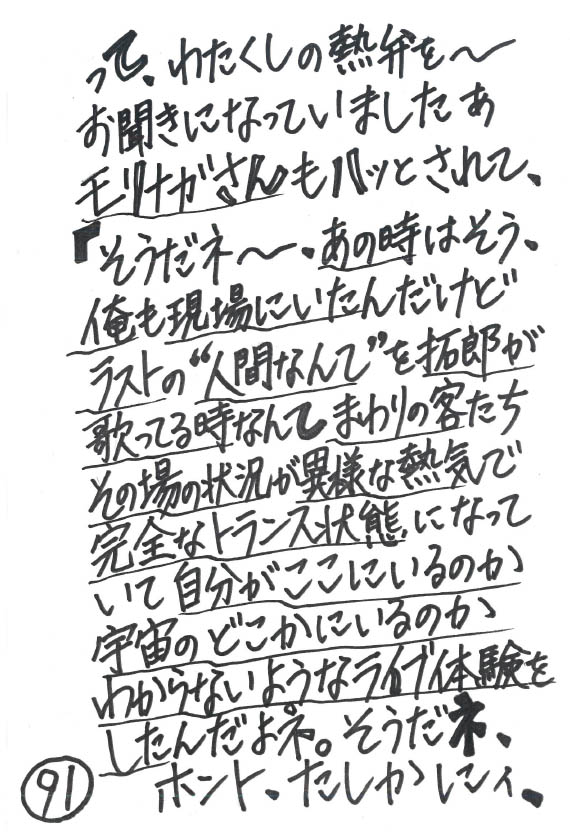 って、わたくしの熱弁を〜
お聞きになっていましたあ
モリナガさんもハッとされて、
「そうだネ〜、あの時はそう、
俺も現場にいたんだけど
ラストの“人間なんて”を拓郎が
歌ってる時なんて まわりの客たち
その場の状況が異様な熱気で
完全なトランス状態になって
いて自分がここにいるのか
宇宙のどこかにいるのか
わからないようなライブ体験を
したんだよネ。そうだネ、
ホント、たしかにィ、
91